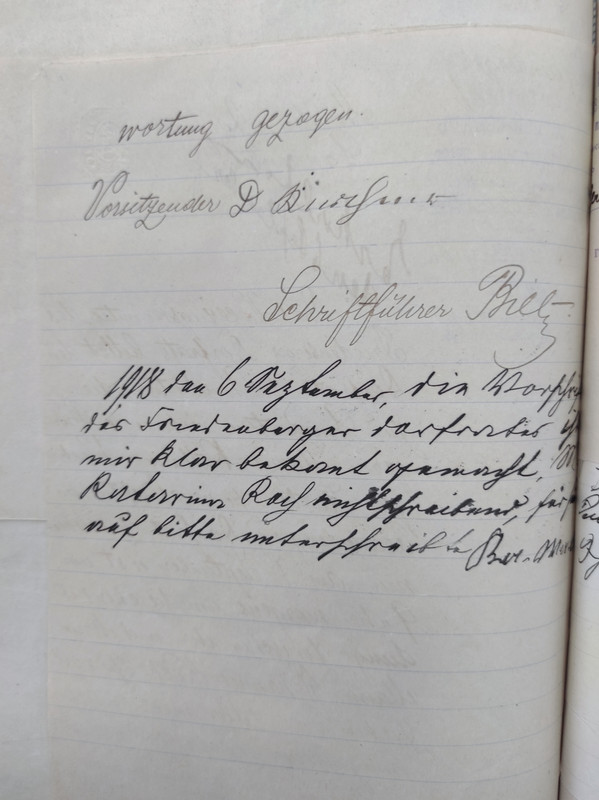 wortung gezogen.
Vorsitzender D Kirchner
Schriftführer Biltz
1918 den 6 September, die Vorschr
des Friedenberger dorfrates
mir klar bekant gemacht,
Katarina Rach nichtschreibend, für
auf bitte unterschreibt